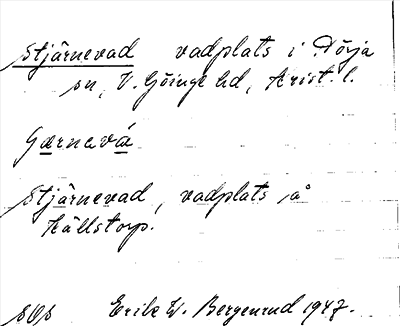 Stjärnevad vadplats i Dörja
sn, V. Göinge hd, Krist. l.
Gærnevá
Stjärnevad, vadplats å
Hällstorp.
SOS Erik W. Bergenrud 1947.